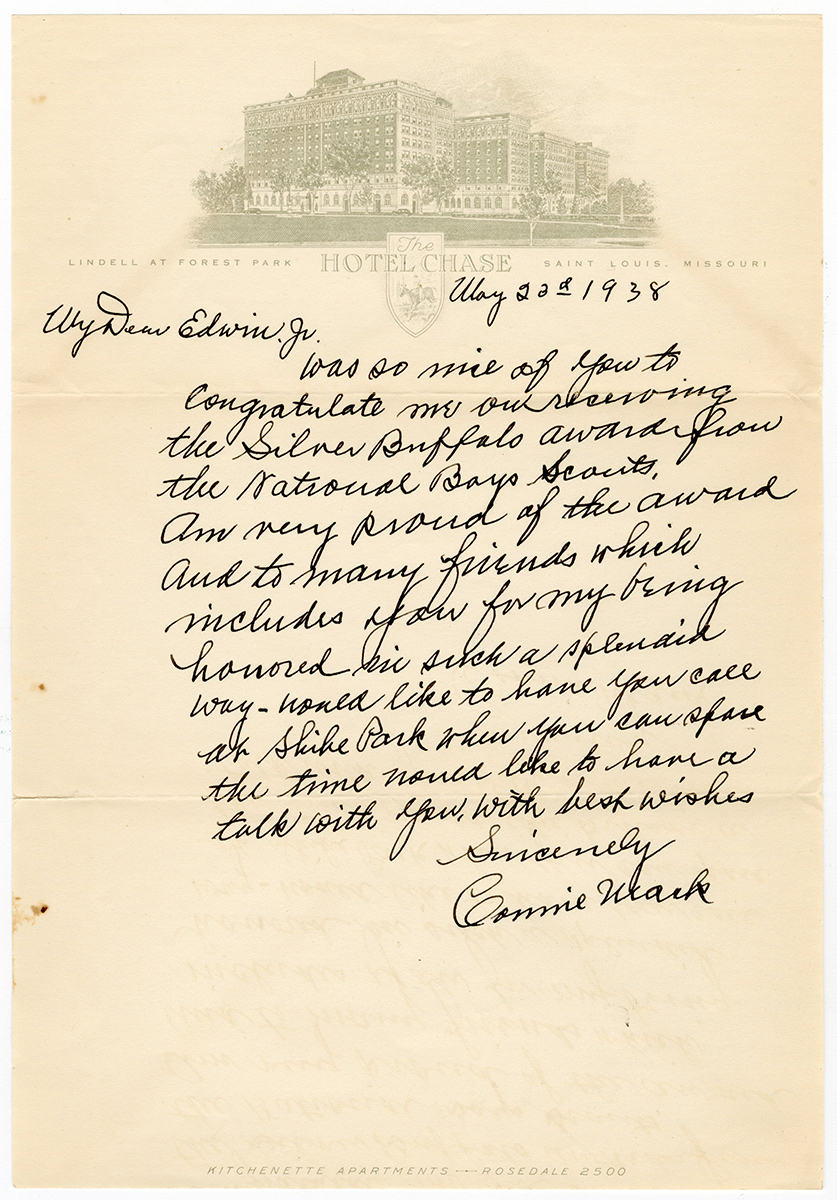 LINDELL AT FOREST PARK The HOTEL CHASE SAINT LOUIS, MISSOURI
May 23d 1938
My Dear Edwin. Jr.
Was so nice of you to
Congratulate me on receiving
the Silver Buffalo award from
the National Boys Scouts.
Am very proud of the award
And to many friends which
includes you for my being
honored in such a splendid
way - would like to have you call
at Shibe Park when you can spare
the time would like to have a
talk with you, with best wishes
Sincerely
Connie Mack
KITCHENETTE APARTMENTS — ROSEDALE 2500